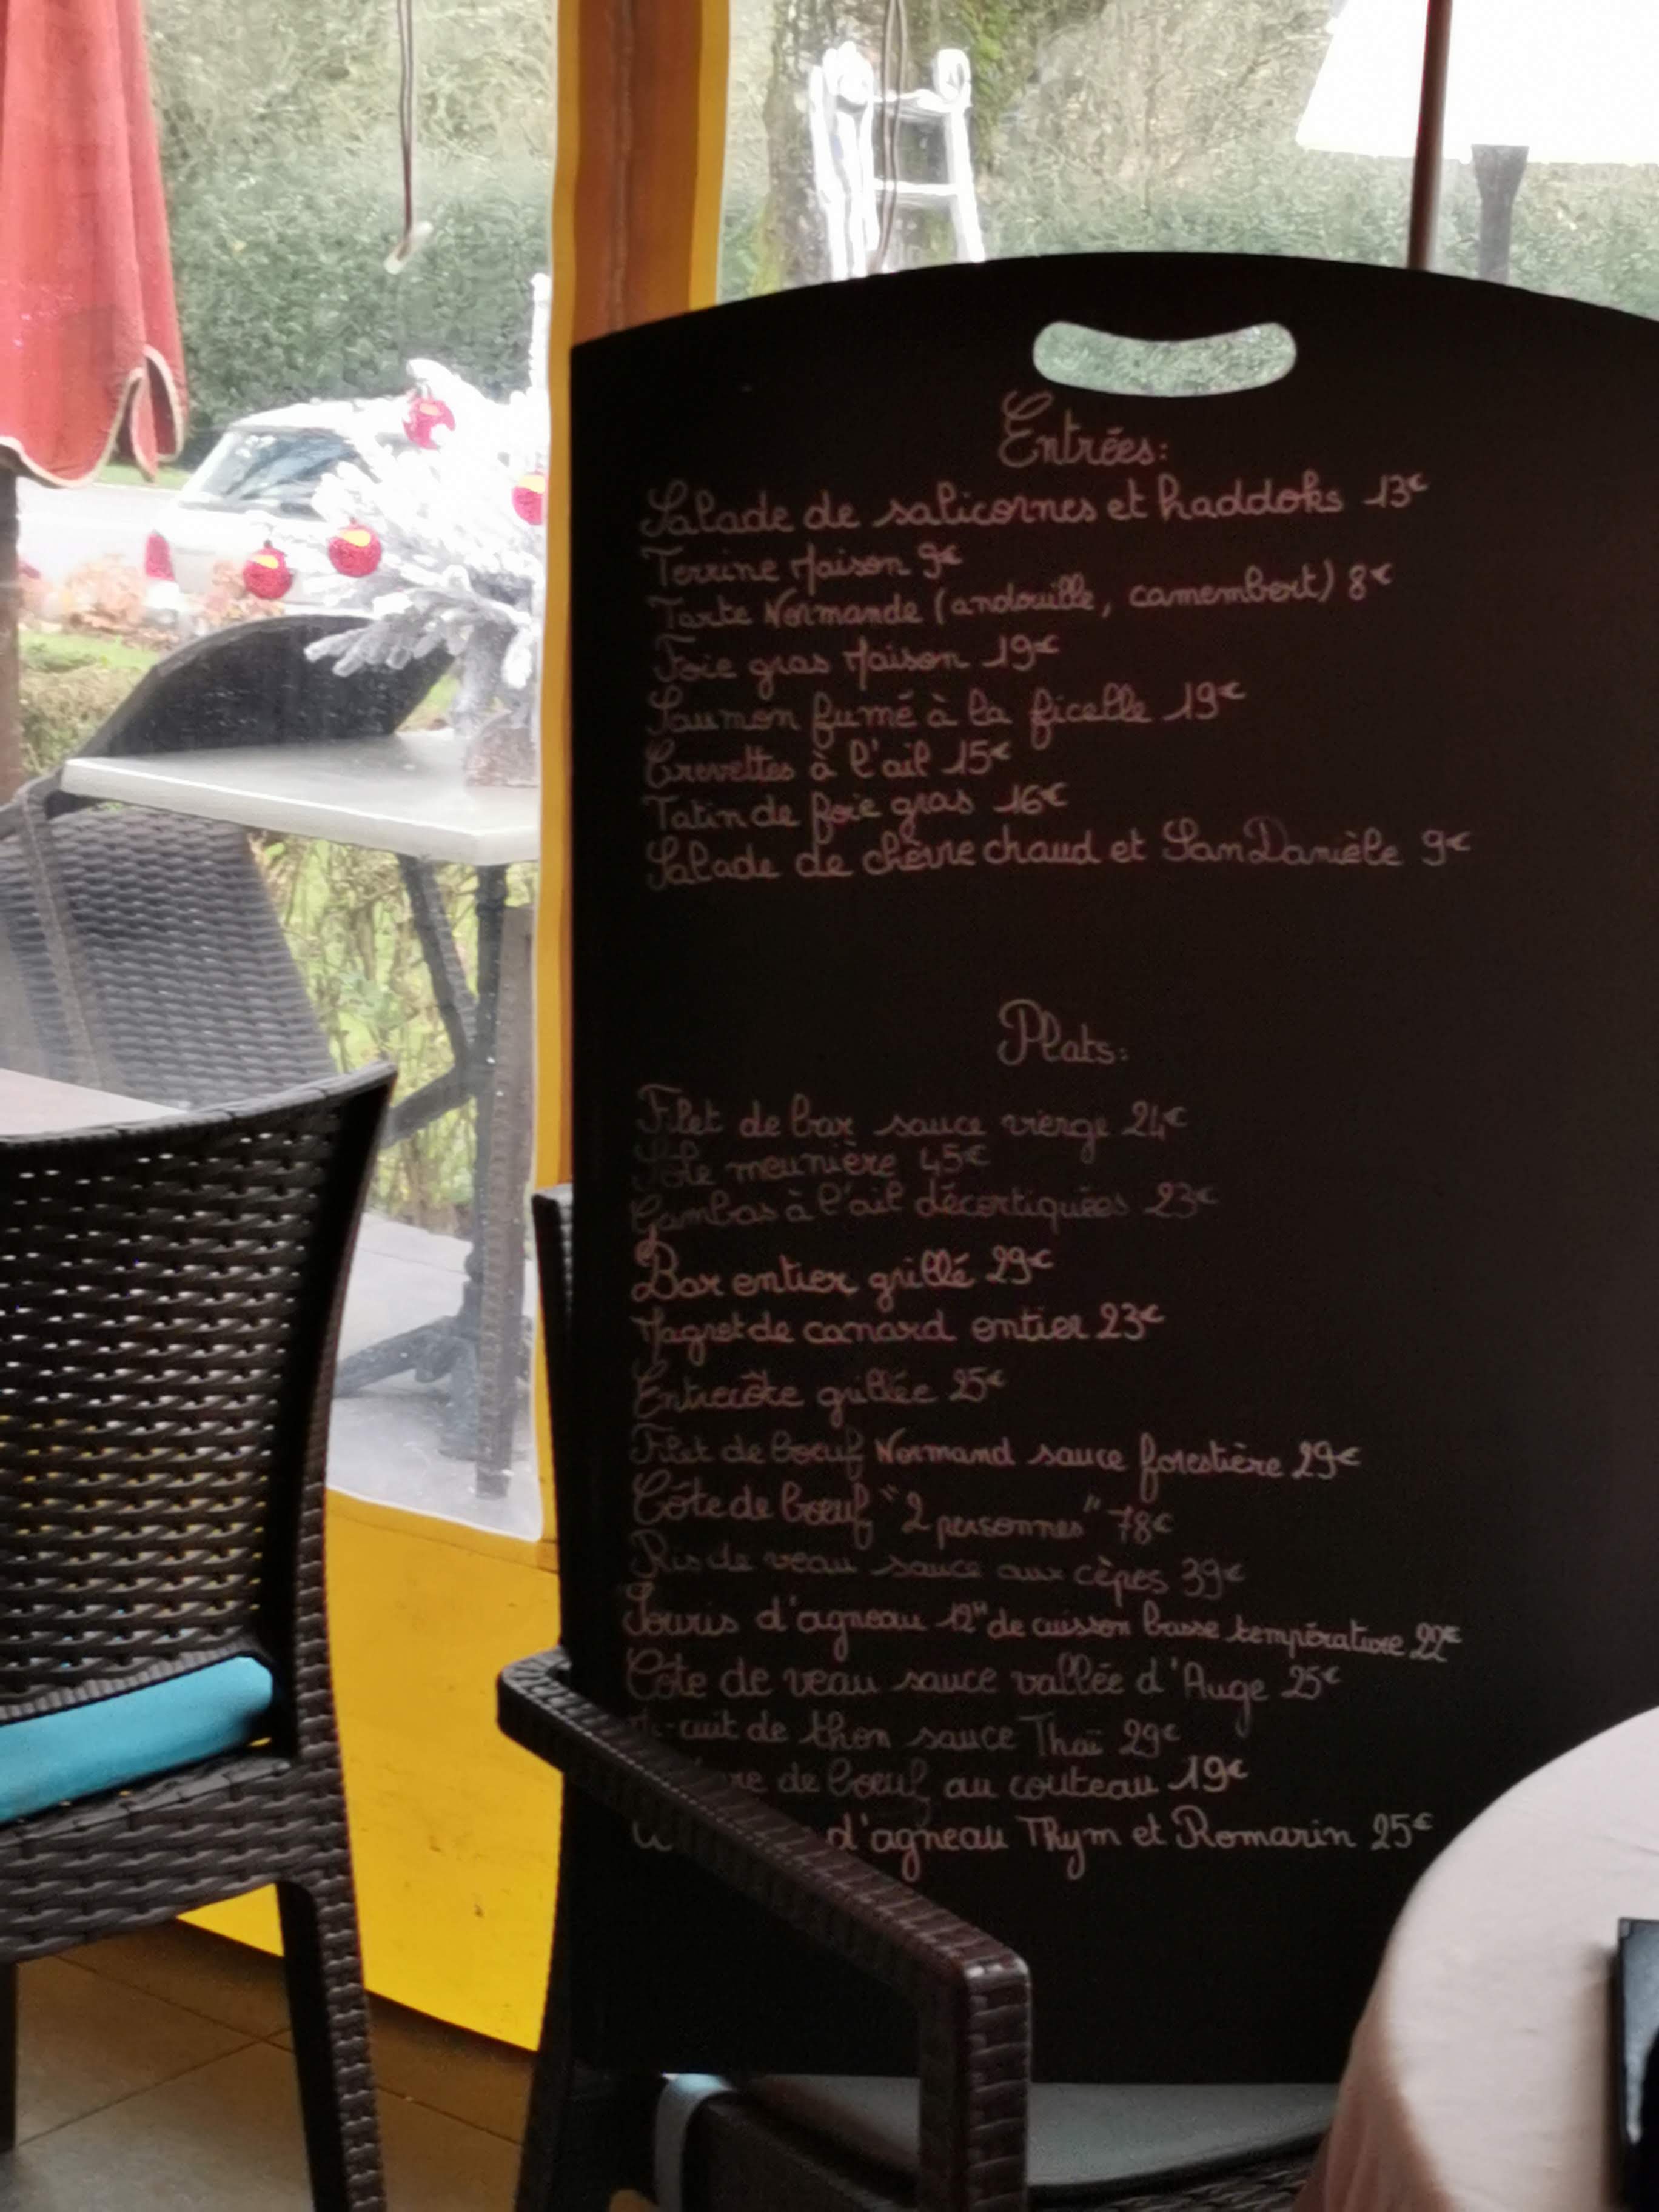 Entrées:
Salade de salicornes et haddoks 13€
Terrine Maison 9€
Tarte Normande (andouille, camembert) 8€
Foie gras Maison 19€
Saumon fumé à la ficelle 19€
Crevettes à l'ail 15€
Tatin de foie gras 16€
Salade de chèvre chaud et San Danièle 9€
Plats:
Filet de bar sauce vierge 24€
Sole meunière 45€
Gambas à l'ail décortiquées 23€
Bar entier grillé 29€
Magret de canard entier 23€
Entrecôte grillée 25€
Filet de boeuf Normand sauce forestière 29€
Côte de boeuf "2 personnes" 78€
Ris de veau sauce aux cèpes 39€
Souris d'agneau 12H de cuisson basse température 22€
Côte de veau sauce vallée d'Auge 25€
cuit de thon sauce Thaï 29€
de boeuf au couteau 19€
d'agneau Thym et Romarin 25€